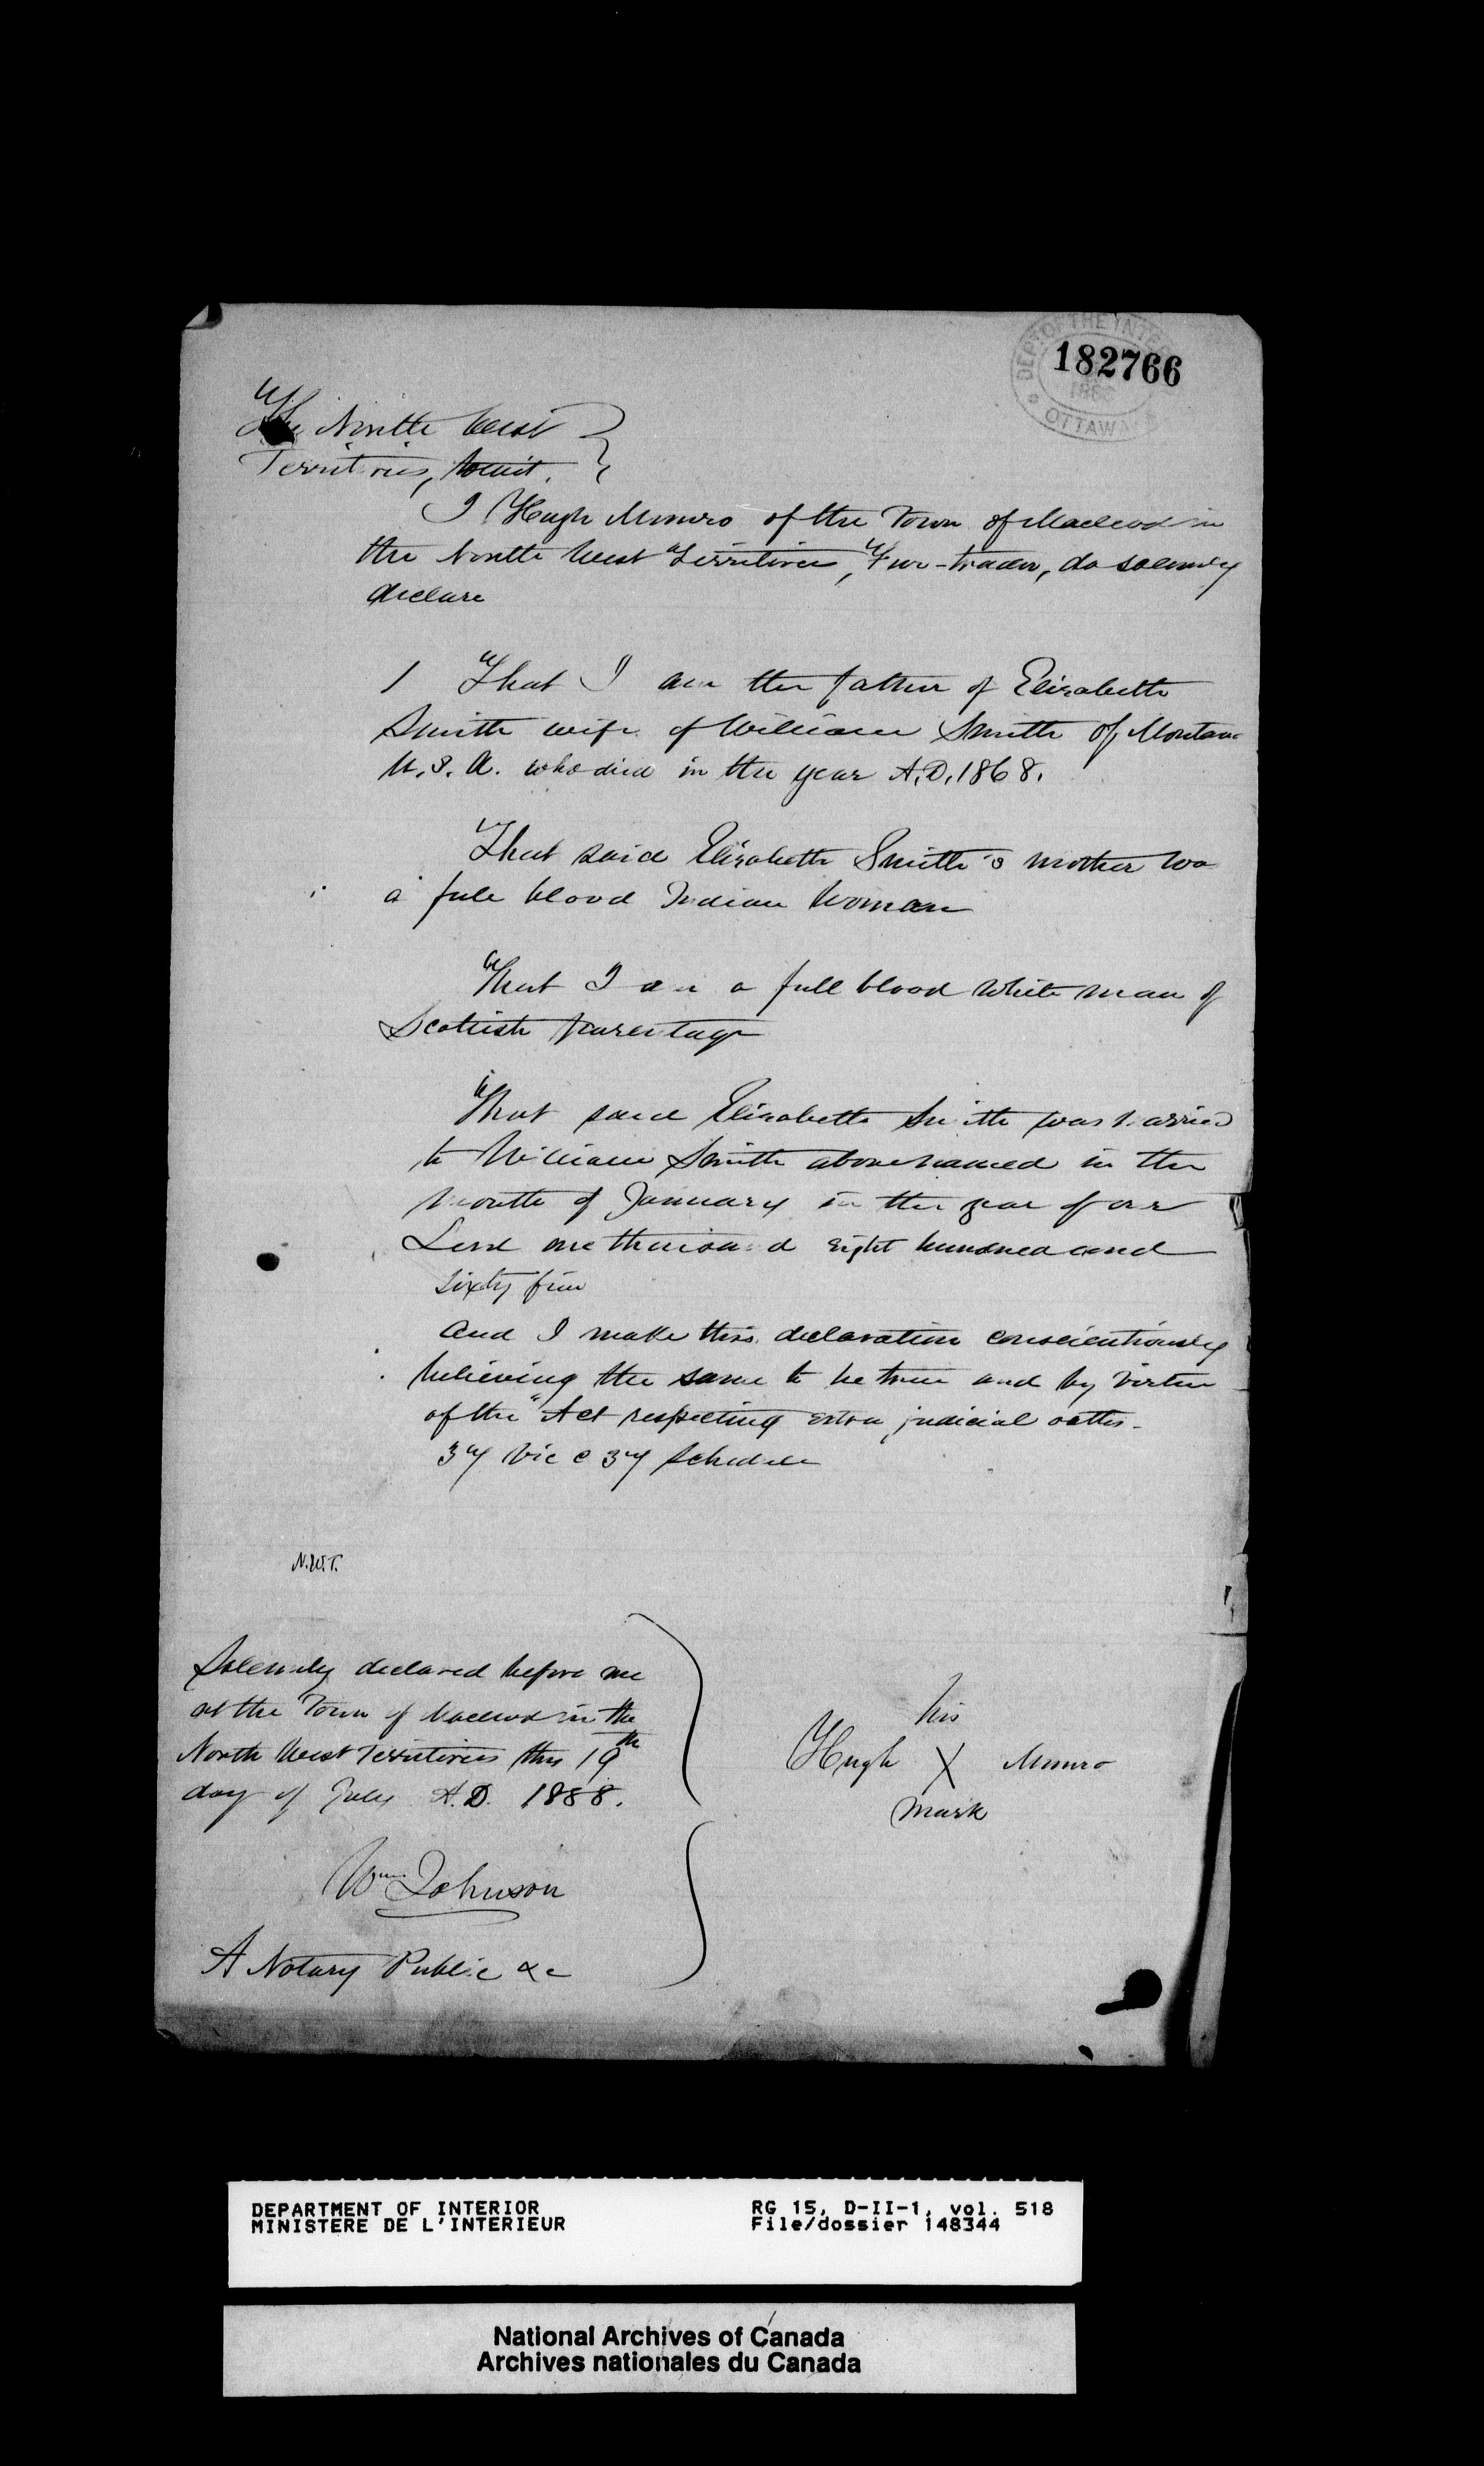 DEPT OF THE INTE
182766
OTTAWA
The North West
Territories, to wit.
I Hugh Munro of the Town of Macleod in
the North West Territories, Fur-trader, do solemnly
declare
1 That I am the father of Elizabeth
Smith wife of William Smith of Montana
U.S.A. who died in the year A.D. 1868.
That said Elizabeth Smith's mother wa
a full blood Indian Woman
That I am a full blood white man of
Scottish parentage
That said Elizabeth Smith was married
to William Smith above named in the
month of January in the year of our
Lord one thousand eight hundred and
sixty five
And I make this declaration conscientiously
believing the same to be true and by virtue
of the "Act respecting extra judicial oaths.
37 Vic c 37 Schedule
N.W.T.
Solemnly declared before me
at the Town of Macleod in the
North West Territories this 19th
day of July A.D. 1888.
his
Hugh X Munro
mark
Wm Johnson
A Notary Public &c
DEPARTMENT OF INTERIOR
MINISTERE DE L'INTERIEUR
RG 15, D-II-1, vol. 518
File/dossier 148344
National Archives of Canada
Archives nationales du Canada